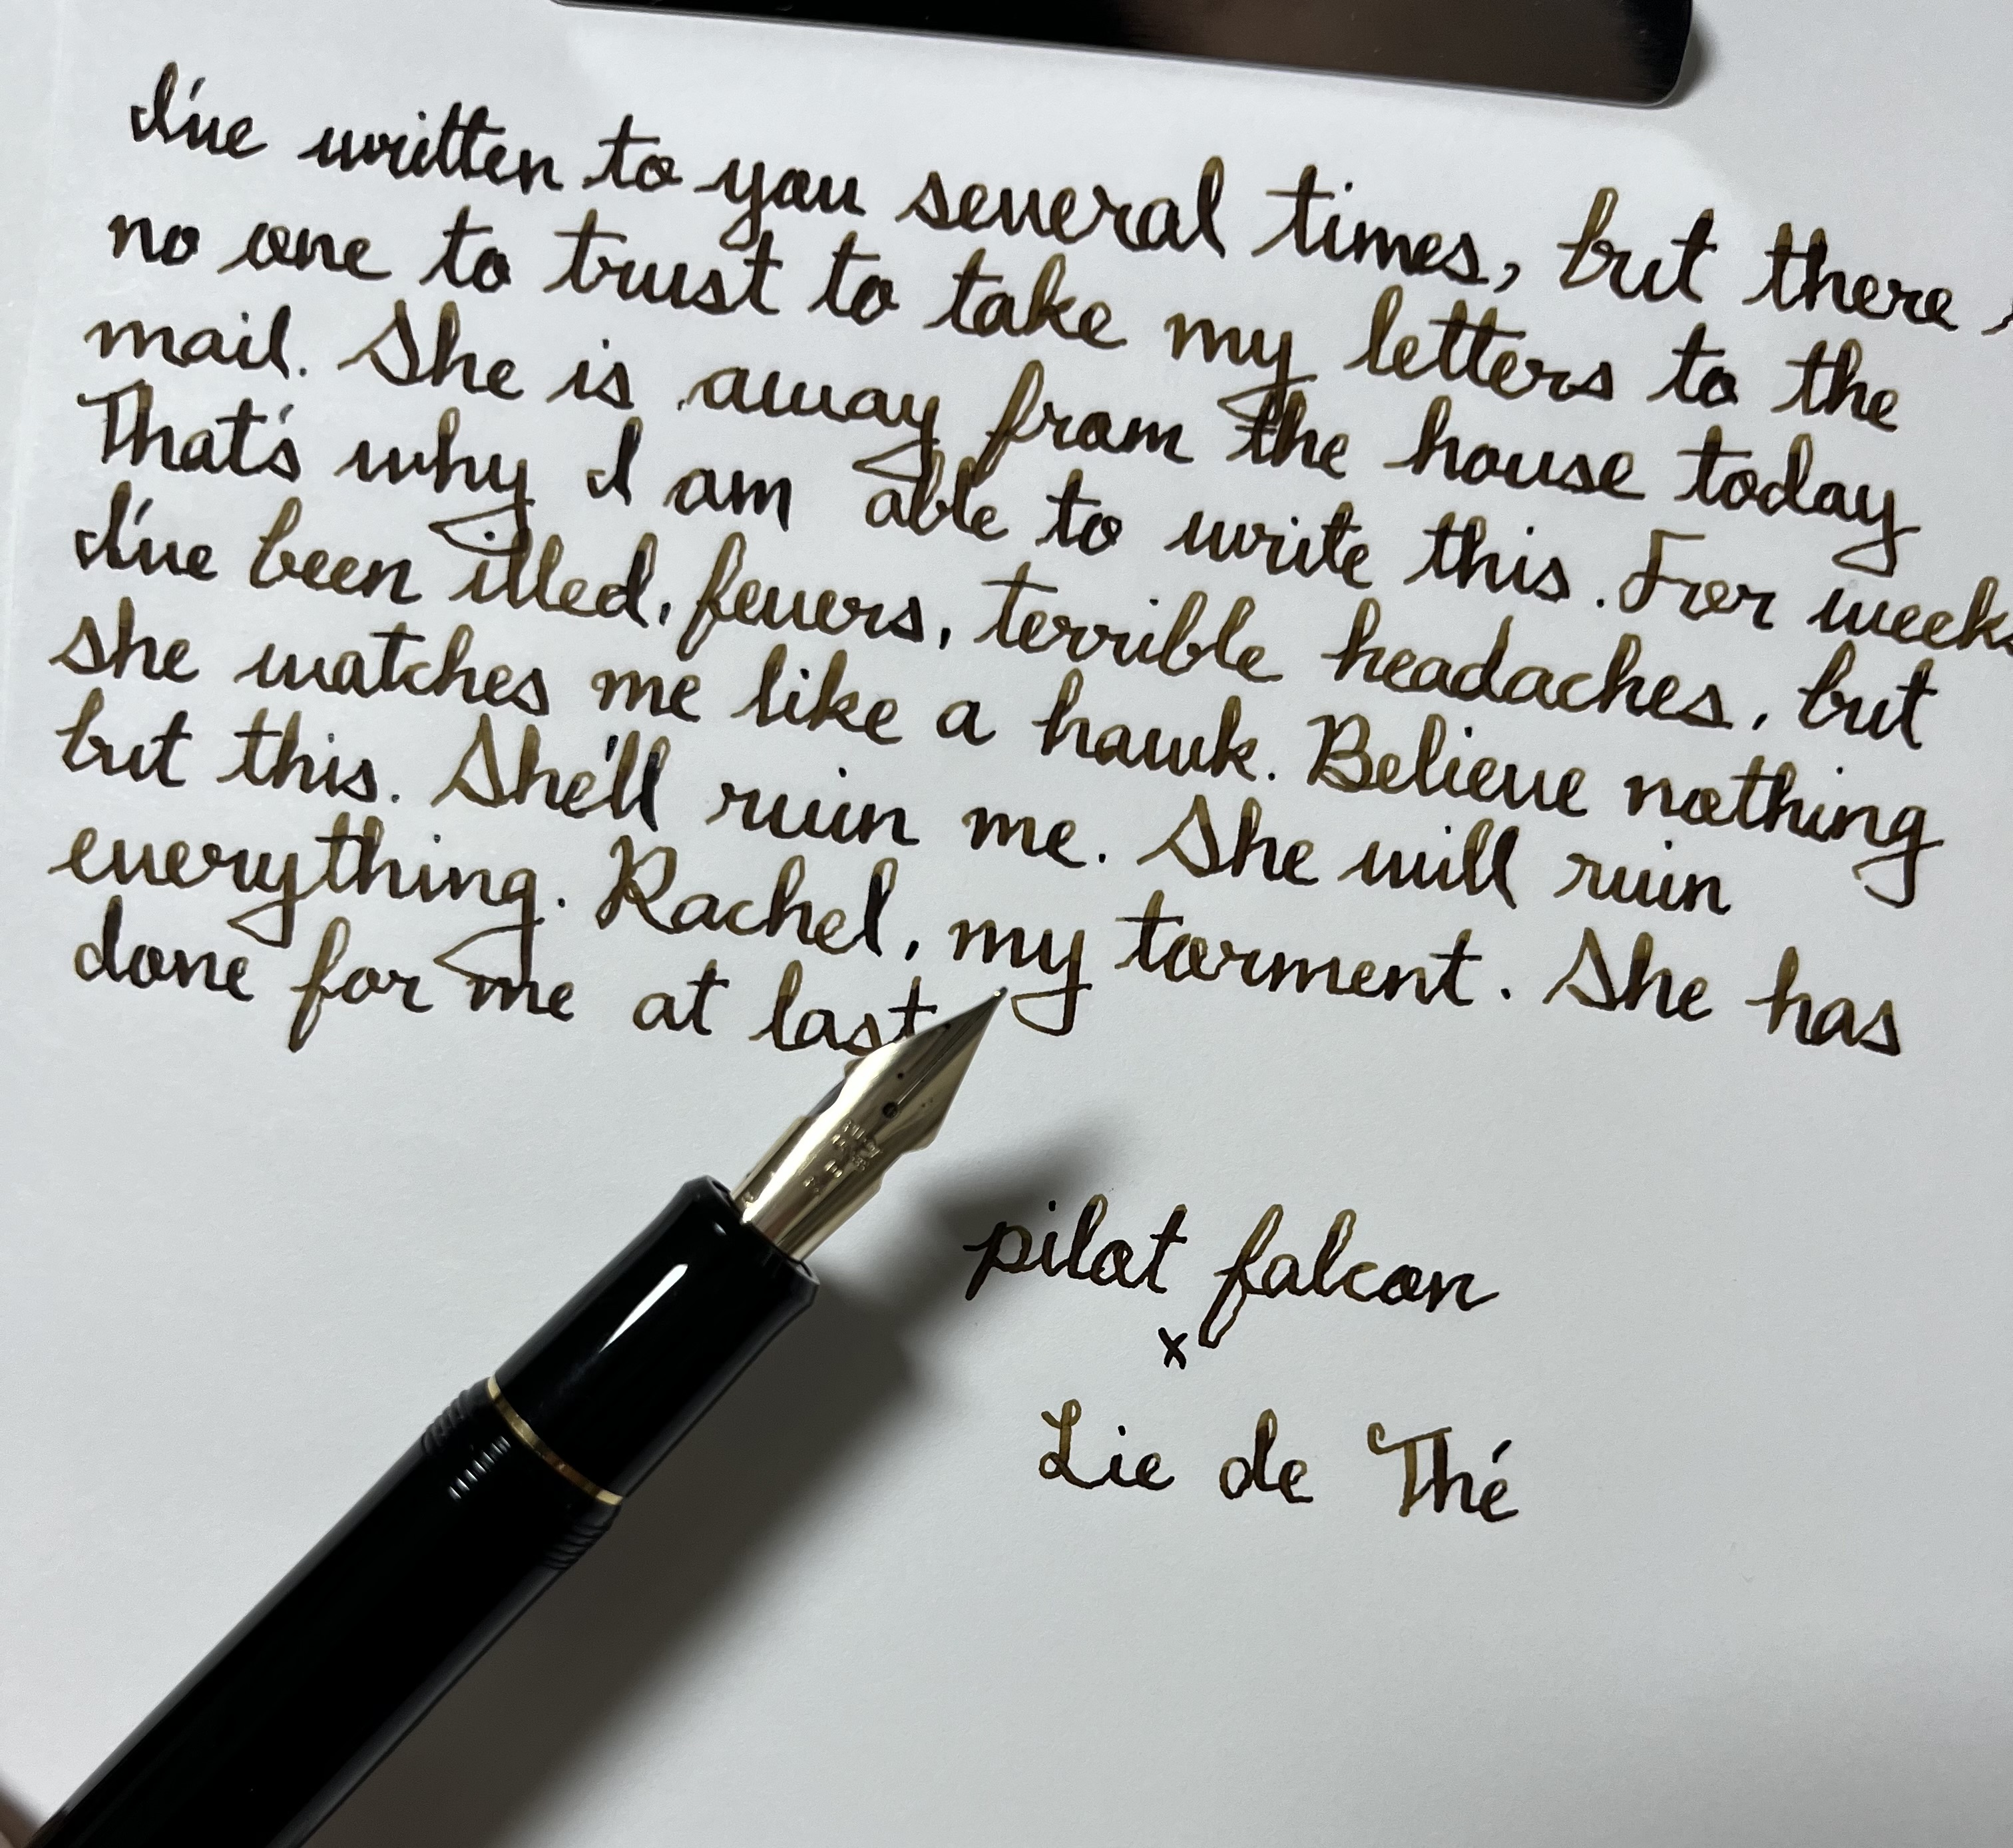 I've written to you several times, but there
no one to trust to take my letters to the
mail. She is away from the house today
That's why I am able to write this. For weeks
I've been illed, fevers, terrible headaches, but
she watches me like a hawk. Believe nothing
but this. She'll ruin me. She will ruin
everything. Rachel, my torment. She has
done for me at last
pilot falcon
x
Lie de Thé